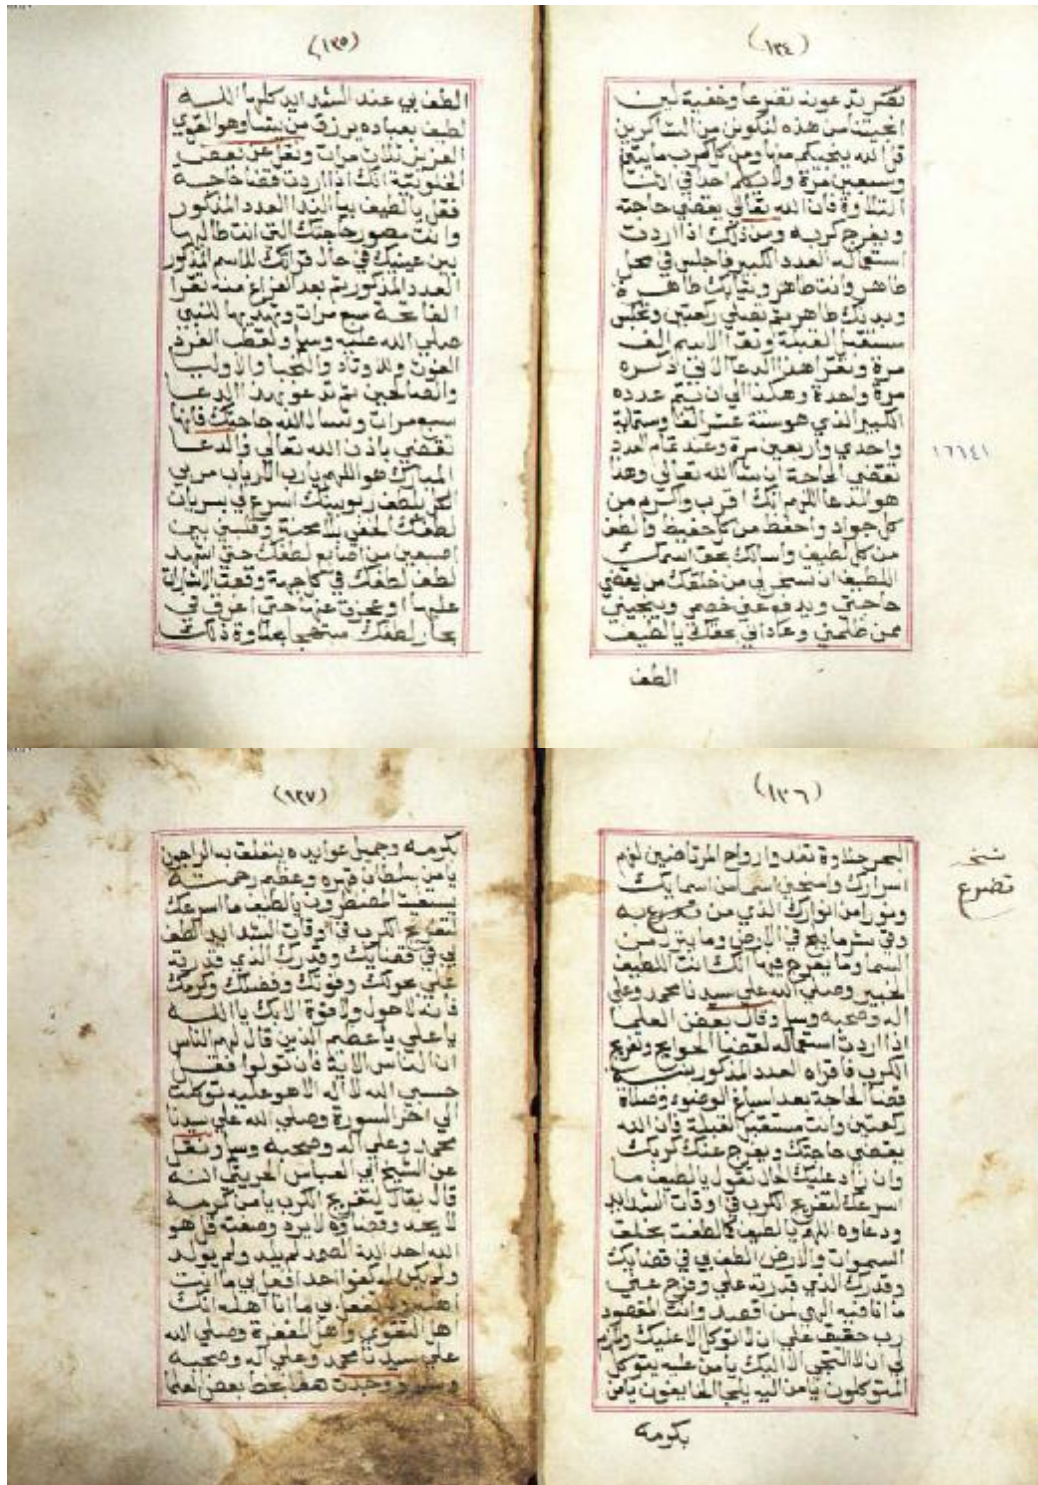 (١٣٤)
تضر تدعونه تضرعا وخفية لين
انجيتنا من هذه لنكونن من الشاكرين
قل الله ينجيكم منها ومن كل كرب مايتين
وسبعين مرة ولا يكلم احدا في اثنا
التلاوة فان الله تعالي يقضي حاجته
ويفرج كربه ومن ذلك اذا اردت
استعماله العدد الكبير فاجلس في محل
طاهر وانت طاهر وثيابك طاهرة
وبدنك طاهر ثم تصلي ركعتين وتجلس
مستقبل القبلة وتقرا الاسم الف
مرة وتقرا هذا الدعا الاتي ذكره
مرة واحدة وهكذا الي ان يتم عدده
الكبير الذي هو ستة عشر الفا وستماية
واحدي واربعين مرة وعند تمام العدد
١٦٦٤١
تقضي الحاجة ان شا الله تعالي وهذا
هو الدعا اللهم انك اقرب واكرم من
كل جواد واحفظ من كل حفيظ والطف
من كل لطيف واسالك بحق اسمك
اللطيف ان تسخر لي من خلقك من يقضي
حاجتي ويدفع عني خصمي وينجيني
ممن ظلمني وعاداني بحقك يا لطيف
الطف
(١٣٥)
الطف بي عند الشدايد كلها الله
لطيف بعباده يرزق من يشا وهو القوي
العزيز ثلاث مرات ونقل عن بعض
الخلوتية انك اذا اردت قضا حاجة
فقل يا لطيف بيا الندا العدد المذكور
وانت مصور حاجتك التي انت طالبها
بين عينيك في حال قراتك للاسم المذكور
العدد المذكور ثم بعد الفراغ منه تقرا
الفاتحة سبع مرات وتهديها للنبي
صلي الله عليه وسلم ولقطب الفرد
الغوث وللاوتاد والنجبا والاوليا
والصالحين ثم تدعو بهذا الدعا
سبع مرات وتسال الله حاجتك فانها
تقضي باذن الله تعالي والدعا
المبارك هو اللهم يا رب الارباب مربي
الكل بلطف ربوبيتك اسرع لي بسريان
لطفك الخفي بلا محنة وقلبني بين
اصبعين من اصابع لطفك حتي اشهد
لطف لطفك في كل جهة وقعت الاشارة
عليها او تجزت عنها حتي اغرق في
بحار لطفك مبتهجا بحلاوة ذلك
(١٣٦)
البحر حلاوة تغدوا رواح المرتاضين لفهم
اسرارك وامنحني اسما من اسمايك
ونورا من انوارك الذي من تدرع به
نسخه
تضوع
وقي شر ما يلج في الارض وما ينزل من
السما وما يعرج فيها انك انت اللطيف
الخبير وصلي الله علي سيدنا محمد وعلي
اله وصحبه وسلم وقال بعض العلما
اذا اردت استعماله لقضا الحوايج وتفريج
الكرب فاقراه العدد المذكور بنية
قضا الحاجة بعد اسباغ الوضوء وصلاة
ركعتين وانت مستقبل القبلة فان الله
يقضي حاجتك ويفرج عنك كربك
وان زاد عليك الحال تقول يا لطيف ما
اسرعك لتفريج الكرب في اوقات الشدايد
ودعاوه اللهم يا لطيف كما لطفت بخلقك
السموات والارض الطف بي في قضايك
وقدرك الذي قدرته علي وفرج عني
ما انا فيه الهي لمن اقصد وانت المقصود
رب حقيق علي ان لا اتوكل الا عليك ولازم
لي ان لا التجي الا اليك يا من عليه يتوكل
المتوكلون يا من اليه يلجا الخايفون يا من
بكرمه
(١٣٧)
بكرمه وجميل عوايده يتعلق به الراجون
يا من بسلطان قهره وعظيم رحمته
يستغيث المضطرون يا لطيف ما اسرعك
لتفريج الكرب في اوقات الشدايد الطف
بي في قضايك وقدرك الذي قدرته
علي بحولك وقوتك وفضلك وكرمك
فانه لا حول ولا قوة الا بك يا الله
يا علي يا عظيم الذين قال لهم الناس
ان الناس الاية فان تولوا فقل
حسبي الله لا اله الا هو عليه توكلت
الي اخر السورة وصلي الله علي سيدنا
محمد وعلي اله وصحبه وسلم ونقل
عن الشيخ ابي العباس الحريثي انه
قال يقال لتفريج الكرب يا من كرمه
لا يحد وقضاوه لا يرد وصفته قل هو
الله احد الله الصمد لم يلد ولم يولد
ولم يكن له كفوا احد افعل بي ما انت
اهله ولا تفعل بي ما انا اهله انك
اهل التقوي واهل المغفرة وصلي الله
علي سيدنا محمد وعلي اله وصحبه
وسلم ووجدت هذا بخط بعض العلما